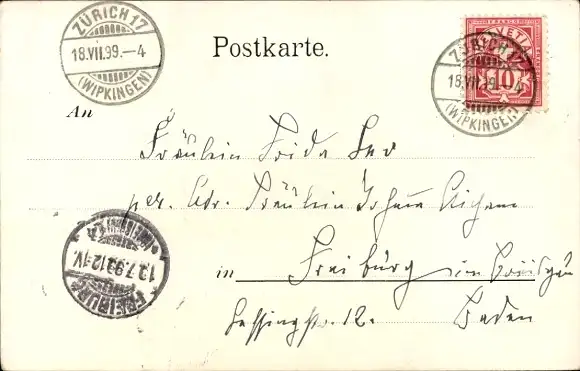 ZÜRICH 17
18.VII.99.–4
(WIPKINGEN)
Postkarte.
HELVETIA
FRANCO
10
ZÜRICH 17
18.VII.99.–4
(WIPKINGEN)
An
Fräulein Frida
per. Adr. Fräulein
FREIBURG
12-1V.
in Freiburg im Breisgau
Lessingstr. 12. Baden